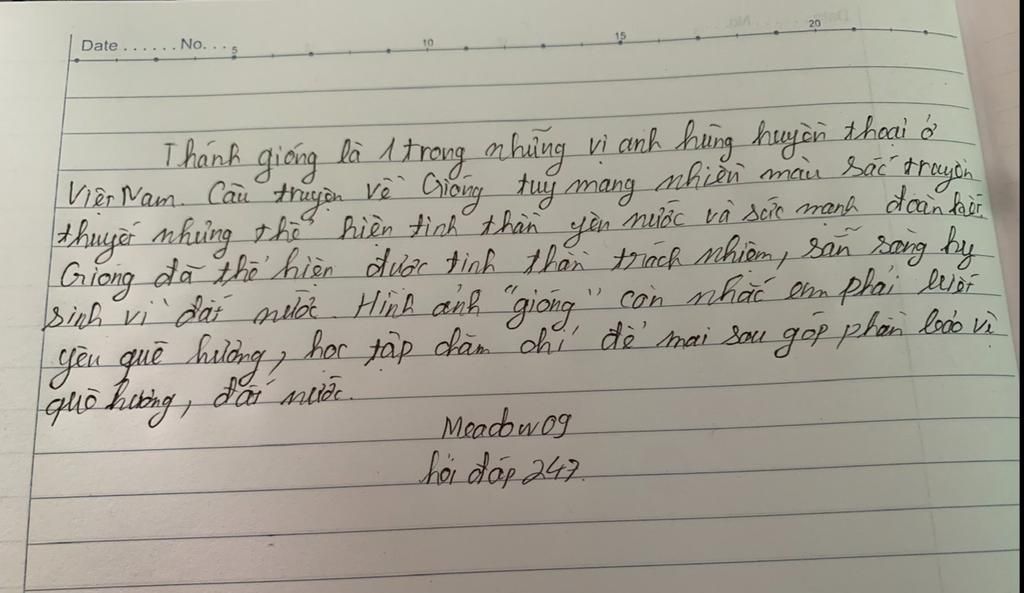 Date ...... No. ... 5 10 15 20
Thánh gióng là 1 trong những vị anh hùng huyền thoại ở
Việt Nam. Câu truyện về Gióng tuy mang nhiều màu sắc truyền
thuyết nhưng thể hiện tinh thần yêu nước và sức mạnh đoàn kết.
Gióng đã thể hiện được tinh thần trách nhiệm, sẵn sàng hy
sinh vì đất nước. Hình ảnh "gióng" còn nhắc em phải biết
yêu quê hương, học tập chăm chỉ để mai sau góp phần bảo vệ
quê hương, đất nước.
Meadow09
hỏi đáp 247.